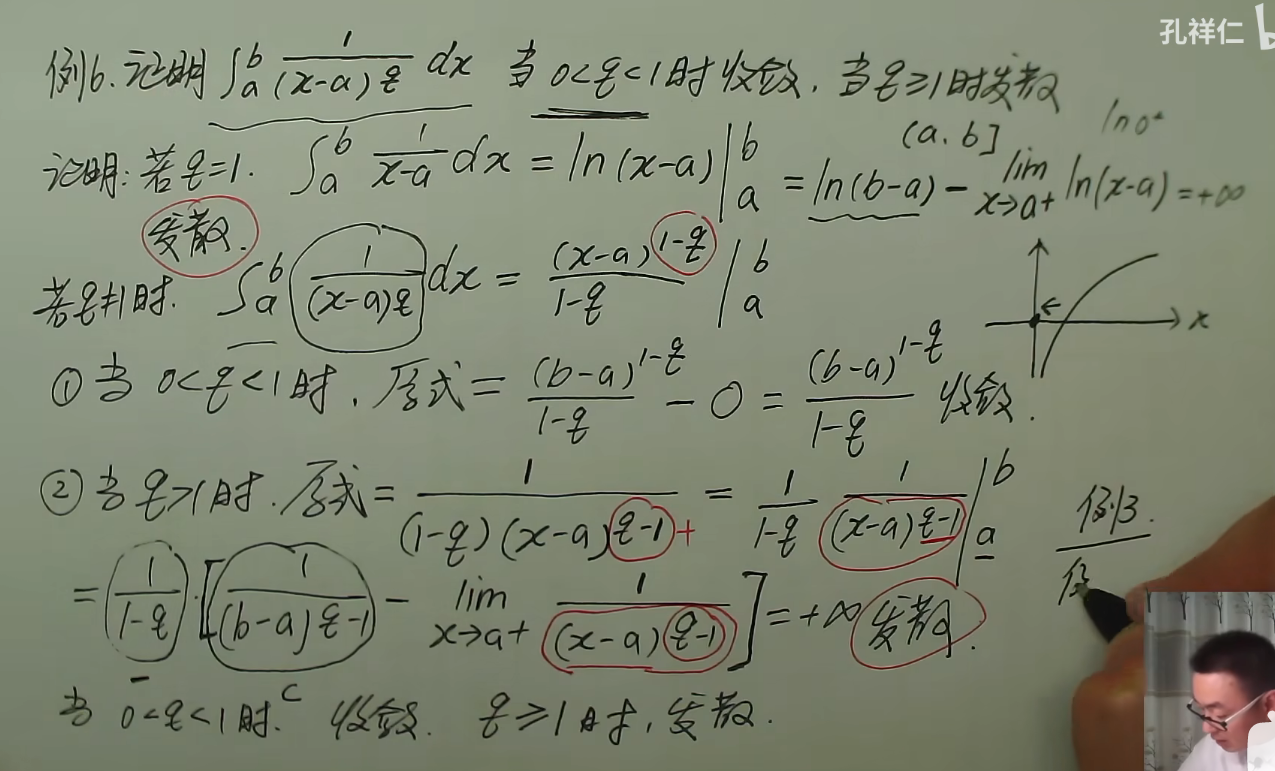 孔祥仁 b
例6.证明 ∫_a^b 1/(x-a)^q dx 当 0<q<1时收敛,当q≥1时发散
(a,b] ln0⁺
证明:若q=1. ∫_a^b 1/(x-a) dx = ln(x-a) |_a^b = ln(b-a) - lim_{x→a+} ln(x-a) = +∞
发散.
若q≠1时. ∫_a^b 1/(x-a)^q dx = (x-a)^{1-q}/(1-q) |_a^b
x
①当 0<q<1时, 原式= (b-a)^{1-q}/(1-q) - 0 = (b-a)^{1-q}/(1-q) 收敛.
②当q>1时.原式= 1/((1-q)(x-a)^{q-1}) = 1/(1-q) 1/(x-a)^{q-1} |_a^b
+
例3.
= 1/(1-q)·[1/(b-a)^{q-1} - lim_{x→a+} 1/(x-a)^{q-1}] = +∞ 发散.
- C
当 0<q<1时. 收敛. q≥1时,发散.